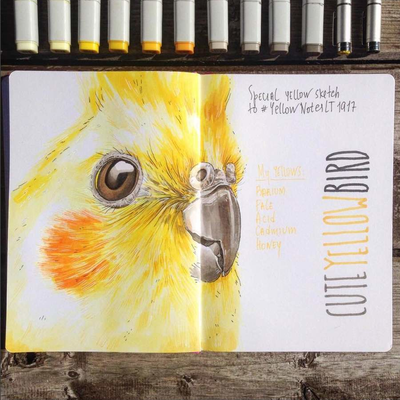 Special yellow sketch
to #YellowNotesLT 1917
My yellows:
Pale
Acid
Cadmium
Honey
CUTEYELLOWBIRD